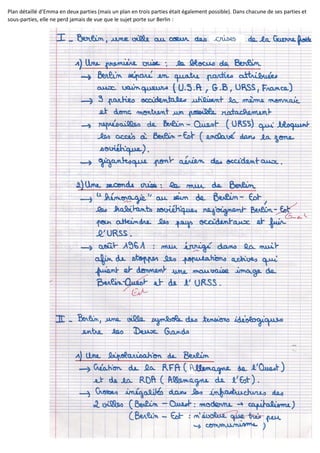 Plan détaillé d'Emma en deux parties (mais un plan en trois parties était également possible). Dans chacune de ses parties et
sous-parties, elle ne perd jamais de vue que le sujet porte sur Berlin :
I - Berlin, une ville au cœur des crises de la Guerre froide
1) Une première crise : le blocus de Berlin
→ Berlin séparé en quatre parties attribuées
aux vainqueurs (U.S.A, G.B, URSS, France)
→ 3 parties occidentales utilisent la même monnaie
et donc montrent un possible rattachement
→ représailles de Berlin-Ouest (URSS) qui bloquent
les accès à Berlin-Est (enclavé dans la zone
soviétique).
→ gigantesque pont aérien des occidentaux.
2) Une seconde crise : le mur de Berlin
→ "hémorragie" au sein de Berlin-Est,
les habitants soviétiques rejoignent Berlin-Est
Ouest
pour atteindre les pays occidentaux et fuir
l'URSS.
→ août 1961 : mur érrigé dans la nuit
afin de stopper les populations actives qui
fuient et donnent une mauvaise image de
Berlin-Ouest et de l'URSS.
Est
II - Berlin, une ville symbole des tensions idéologiques
entre les Deux Grands
1) Une bipolarisation de Berlin
→ Création de la RFA (Allemagne de l'Ouest)
et de la RDA (Allemagne de l'Est).
→ Grosses inégalités dans les infrastructures des
2 villes (Berlin-Ouest : moderne → capitalisme)
(Berlin-Est : n'évolue que très peu
→ communisme)